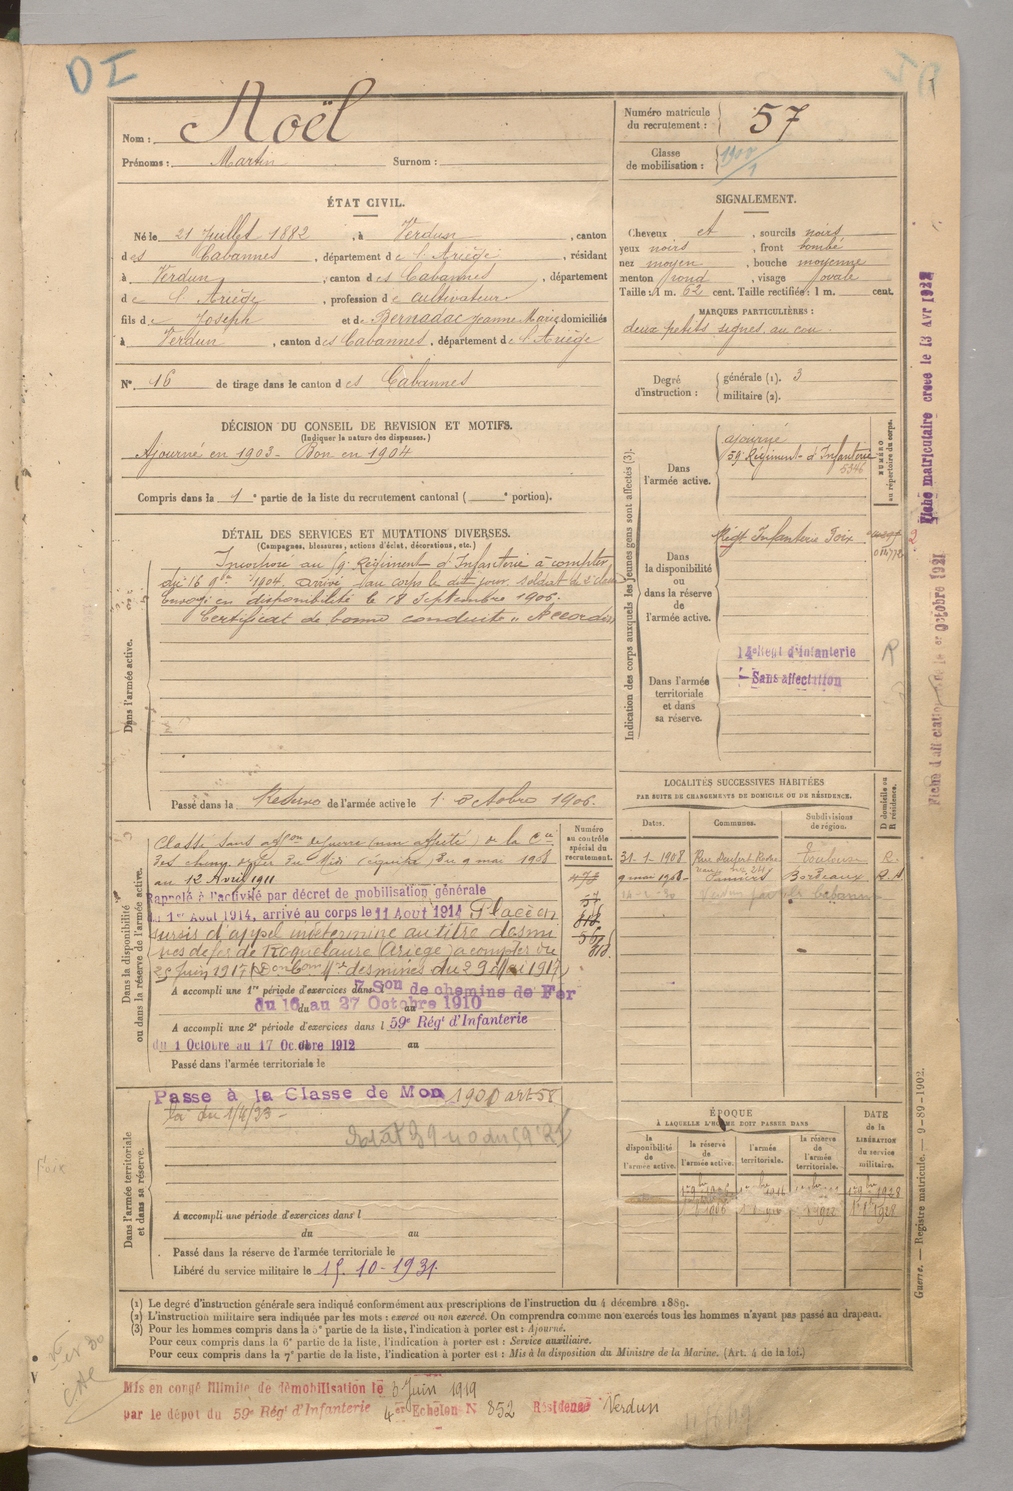 DI
Nom : Noël
Prénoms : Martin Surnom :
Numéro matricule du recrutement : 57
Classe de mobilisation : 1900
ÉTAT CIVIL.
Né le 21 Juillet 1882, à Verdun, canton
des Cabannes, département de l'Ariège, résidant
à Verdun, canton des Cabannes, département
de l'Ariège, profession de cultivateur
fils de Joseph et de Bernadac Jeanne Marie domiciliés
à Verdun, canton des Cabannes, département de l'Ariège
N° 16 de tirage dans le canton des Cabannes
SIGNALEMENT.
Cheveux et, sourcils noirs
yeux noirs, front bombé
nez moyen, bouche moyenne
menton rond, visage ovale
Taille : 1 m. 62 cent. Taille rectifiée : 1 m. cent.
MARQUES PARTICULIÈRES :
deux petits signes au cou.
Degré d'instruction : générale (1). 3
militaire (2).
DÉCISION DU CONSEIL DE REVISION ET MOTIFS.
(Indiquer la nature des dispenses.)
Ajourné en 1903 - Bon en 1904
Compris dans la 1e partie de la liste du recrutement cantonal ( e portion).
DÉTAIL DES SERVICES ET MUTATIONS DIVERSES.
(Campagnes, blessures, actions d'éclat, décorations, etc.)
Dans l'armée active.
Incorporé au 59e Régiment d'Infanterie à compter
du 16 9bre 1904, arrivé au corps le dit jour, soldat de 2e classe
Envoyé en disponibilité le 18 Septembre 1906.
Certificat de bonne conduite "Accordé"
Passé dans la Réserve de l'armée active le 1 Octobre 1906.
Indication des corps auxquels les jeunes gens sont affectés (3).
NUMÉRO au répertoire du corps.
Dans l'armée active.
ajourné
59e Régiment d'Infanterie
5346
Dans la disponibilité ou dans la réserve de l'armée active.
Régt Infanterie Foix
Dans l'armée territoriale et dans sa réserve.
14e Régt d'infanterie
Sans affectation
R
Fiche matriculaire créée le 13 Avr 1922
Octobre 1921
LOCALITÉS SUCCESSIVES HABITÉES
PAR SUITE DE CHANGEMENTS DE DOMICILE OU DE RÉSIDENCE.
Dates. Communes. Subdivisions de région. D domicile ou R résidence.
31-1-1908 Rue Denfert Rochereau Toulouse R.
9 mai 1908 Pamiers Bordeaux R.
Dans la disponibilité ou dans la réserve de l'armée active.
Numéro au contrôle spécial du recrutement.
Classé dans affon
des chemins de fer du Midi du 9 mai 1908
au 12 Avril 1911
Rappelé à l'activité par décret de mobilisation générale
du 1er Août 1914, arrivé au corps le 11 Août 1914 Placé en
sursis d'appel indéterminé au titre des mi
nes de fer de Roquelaure (Ariège) à compter du
25 Juin 1917 des mines du 29 Mai 1917
A accompli une 1re période d'exercices dans 7 Son de chemins de Fer
du 16 au 27 Octobre 1910
A accompli une 2e période d'exercices dans l 59e Régt d'Infanterie
du 1 Octobre au 17 Octobre 1912 au
Passé dans l'armée territoriale le
Dans l'armée territoriale et dans sa réserve.
Passé à la Classe de Mon 1900 art 58
loi du 1/4/23 -
A accompli une période d'exercices dans l
du au
Passé dans la réserve de l'armée territoriale le
Libéré du service militaire le 15-10-1931.
ÉPOQUE
À LAQUELLE L'HOMME DOIT PASSER DANS
la disponibilité de l'armée active.
la réserve de l'armée active.
l'armée territoriale.
la réserve de l'armée territoriale.
DATE de la LIBÉRATION du service militaire.
(1) Le degré d'instruction générale sera indiqué conformément aux prescriptions de l'instruction du 4 décembre 1889.
(2) L'instruction militaire sera indiquée par les mots : exercé ou non exercé. On comprendra comme non exercés tous les hommes n'ayant pas passé au drapeau.
(3) Pour les hommes compris dans la 5e partie de la liste, l'indication à porter est : Ajourné.
Pour ceux compris dans la 6e partie de la liste, l'indication à porter est : Service auxiliaire.
Pour ceux compris dans la 7e partie de la liste, l'indication à porter est : Mis à la disposition du Ministre de la Marine. (Art. 4 de la loi.)
Guerre. — Registre matricule. — 9-89-1902.
Mis en congé illimité de démobilisation le 3 Juin 1919
par le dépôt du 59e Rég. d'Infanterie 4er Echelon N 852 Résidence Verdun